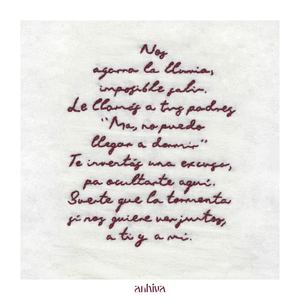 Nos
agarra la lluvia,
imposible salir.
Le llamás a tus padres
"Ma, no puedo
llegar a dormir"
Te inventás una excusa,
pa ocultarte aquí.
Suerte que la tormenta
si nos quiere ver juntos,
a ti y a mi.
anhiva